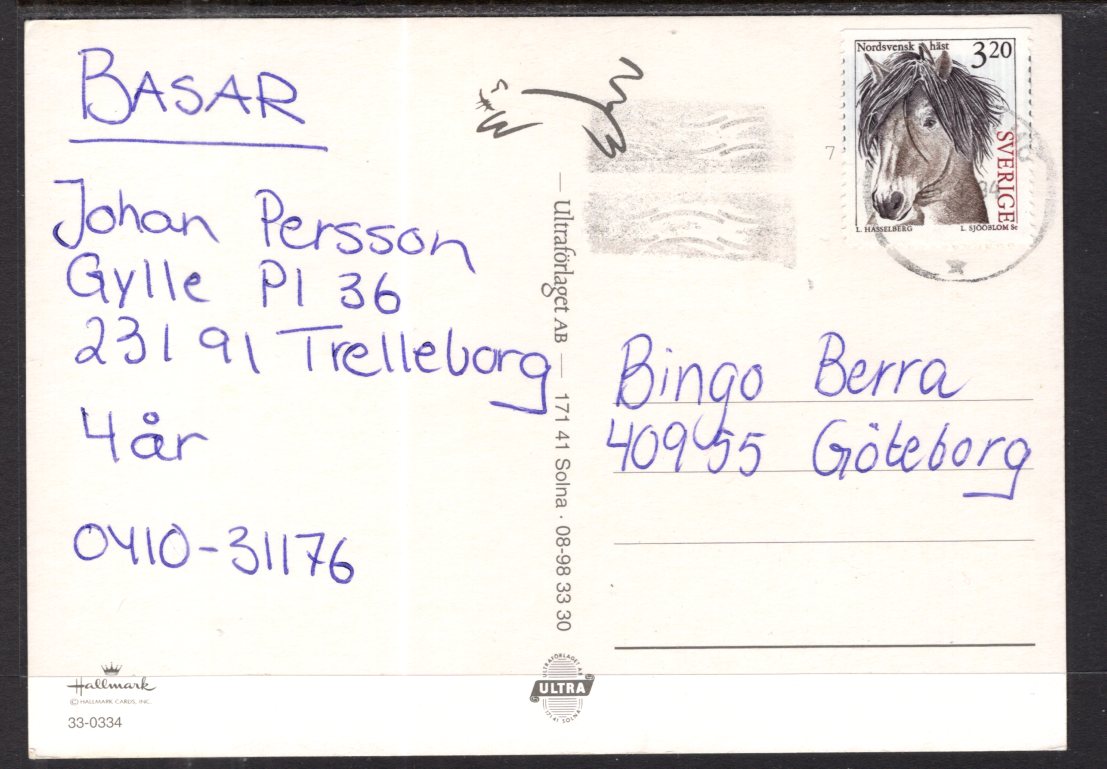 BASAR
Johan Persson
Gylle Pl 36
231 91 Trelleborg
4 år
0410-31176
Hallmark
© HALLMARK CARDS, INC.
33-0334
— Ultraförlaget AB — 171 41 Solna · 08-98 33 30
ULTRAFÖRLAGET AB
ULTRA
171 41 SOLNA
7
Nordsvensk häst
3 20
SVERIGE
L. HASSELBERG L. SJÖÖBLOM Sc
Bingo Berra
409 55 Göteborg